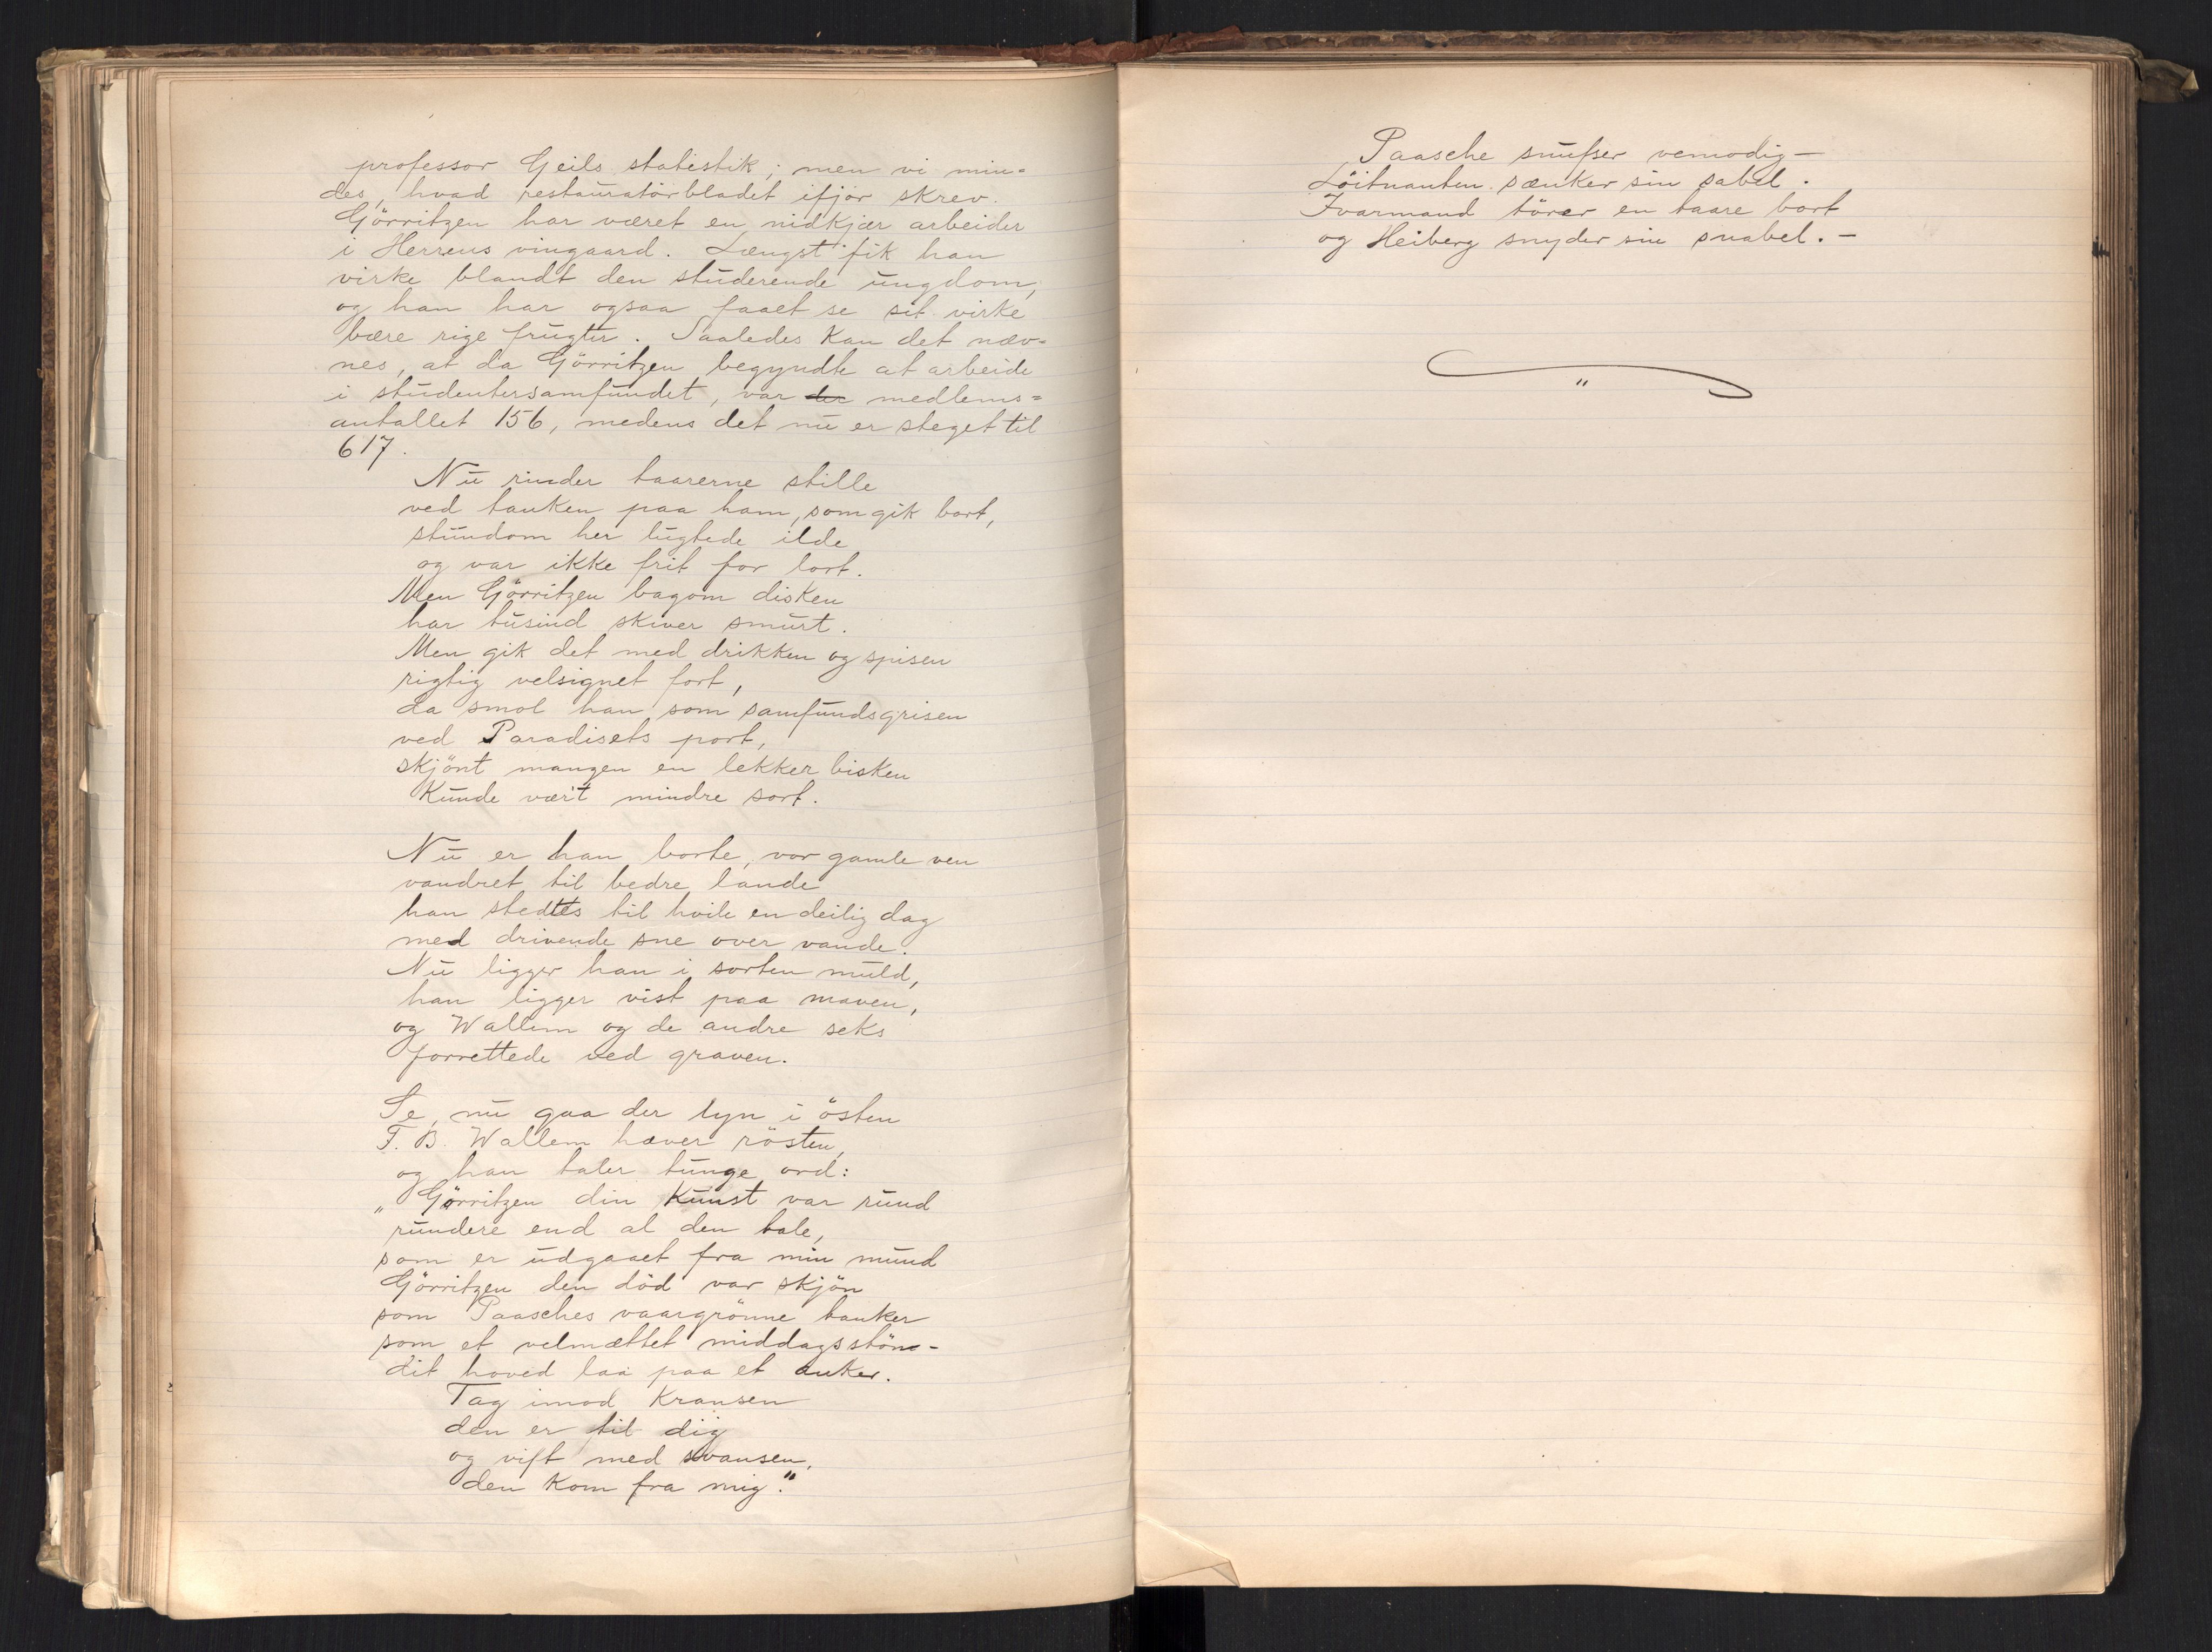 professor Geils statistik; men vi min=
des, hvad restauratörbladet ifjor skrev.
Görritzen har været en nidkjær arbeider
i Herrens vingaard. Længst fik han
virke blandt den studerende ungdom,
og han har ogsaa faaet se sit virke
bære rige frugter. Saaledes kan det næv=
nes, at da Görritzen begyndte at arbeide
i studentersamfundet, var der medlems=
antallet 156, medens det nu er steget til
617.
Nu rinder taarerne stille
ved tanken paa ham, som gik bort,
stundom her lugtede ilde
og var ikke frit for lort.
Men Görritzen bagom disken
har tusind skiver smurt.
Men gik det med drikken og spisen
rigtig velsignet fort,
da smol han som samfundsgrisen
ved Paradisets port,
skjönt mangen en lekker bisken
kunde vær't mindre sort.
Nu er han borte, vor gamle ven
vandret til bedre lande
han stedtes til hvile en deilig dag
med drivende sne over vande.
Nu ligger han i sorten muld,
han ligger vist paa maven,
og Wallem og de andre seks
forrettede ved graven.
Se, nu gaa der lyn i östen
F. B. Wallem hæver rösten,
og han taler tunge ord:
„Görritzen din kunst var rund
rundere end al den tale,
som er udgaaet fra min mund
Görritzen den död var skjön
som Paasches vaargrönne tanker
som et velmættet middagsstön-
dit hoved laa paa et anker.
Tag imod kransen
den er til dig
og vift med svansen,
den kom fra mig."
Paasche snufser vemodig—
Löitnanten sænker sin sabel.
Ivarmand törer en taare bort
og Heiberg snyder sin snabel.—
"